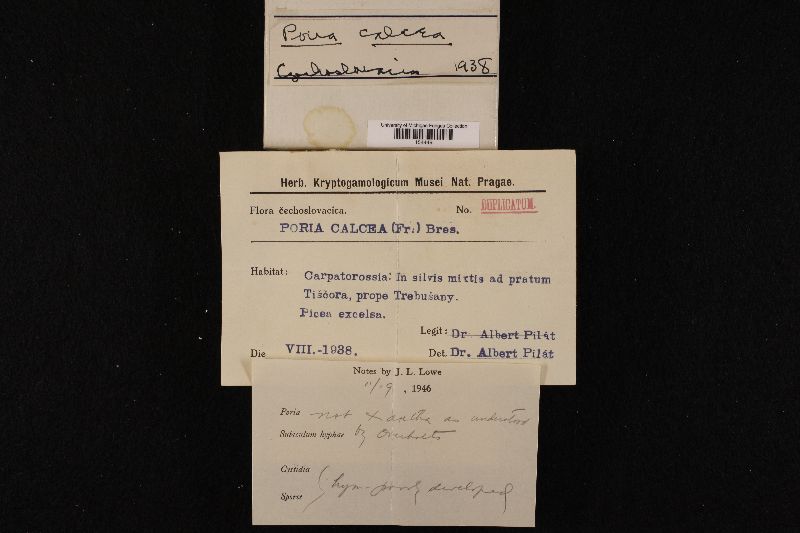 Poria calcea
Czechoslovakia 1938
University of Michigan Fungus Collection
Herb. Kryptogamologicum Musei Nat. Pragae.
Flora čechoslovacica. No. DUPLICATUM.
PORIA CALCEA (Fr.) Bres.
Habitat: Carpatorossia: In silvis mixtis ad pratum
Tiščora, prope Trebušany.
Picea excelsa.
Legit: Dr. Albert Pilát
Die VIII.-1938. Det. Dr. Albert Pilát
Notes by J. L. Lowe
11/29, 1946
Poria not xantha as understood
Subiculum hyphae by Overholts
Cystidia
Spores hym. poorly developed